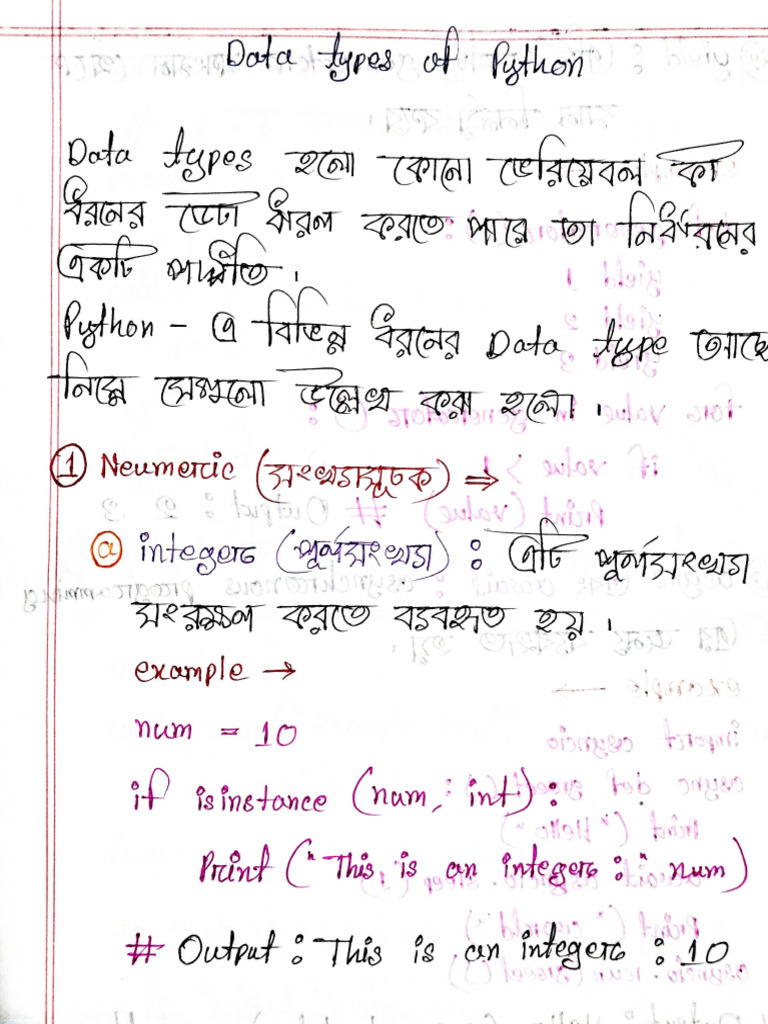 Data types of Python
Data types হলো কোনো ভেরিয়েবল কী
ধরনের ডেটা ধারণ করতে পারে তা নির্ধারনের
একটি পদ্ধতি ।
Python - এ বিভিন্ন ধরনের Data type আছে
নিম্নে সেগুলো উল্লেখ করা হলো ।
① Neumeric (সংখ্যাসূচক) ⇒
ⓐ integers (পূর্ণসংখ্যা) : এটি পূর্ণসংখ্যা
সংরক্ষণ করতে ব্যবহৃত হয় ।
example →
num = 10
if isinstance (num, int) :
Print ("This is an integers : " num)
# Output : This is an integers : 10